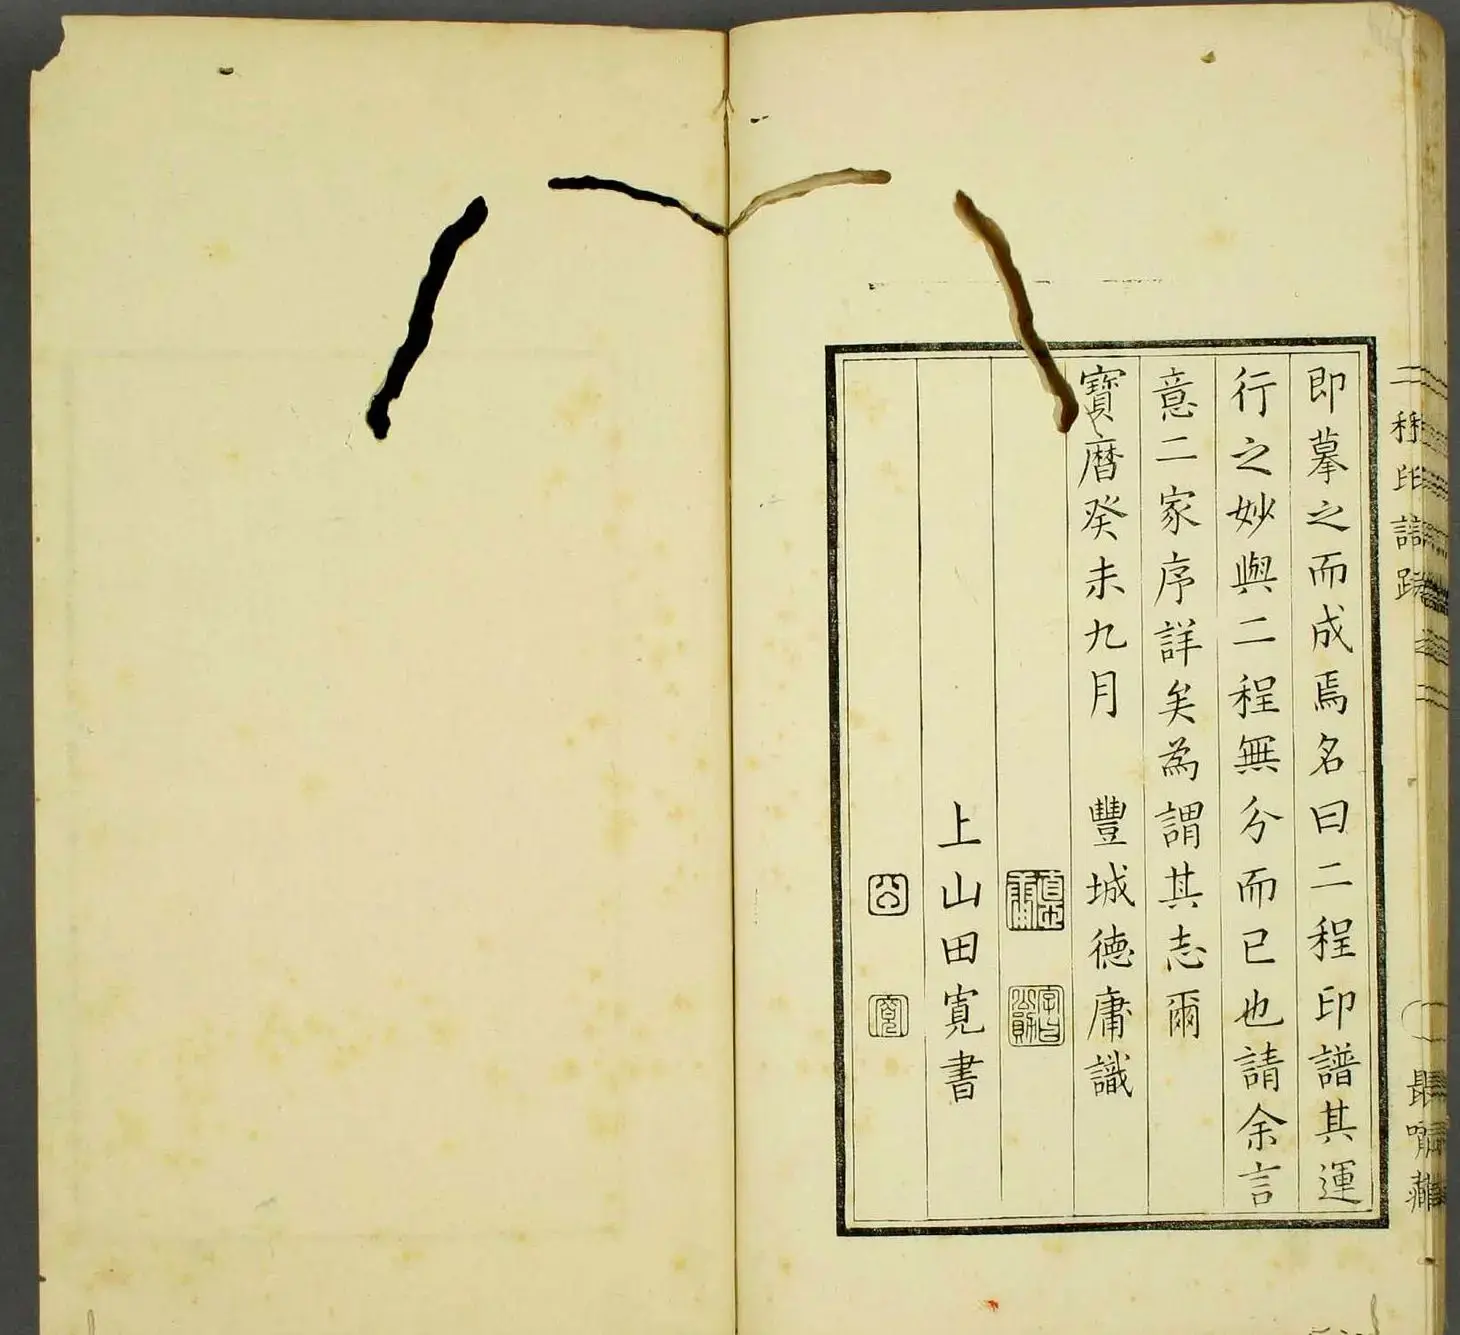 即摹之而成焉名曰二程印譜其運
行之妙與二程無分而已也請余言
意二家序詳矣為謂其志爾
寶暦癸未九月 豐城德庸識
上山田寛書
二程印譜跋